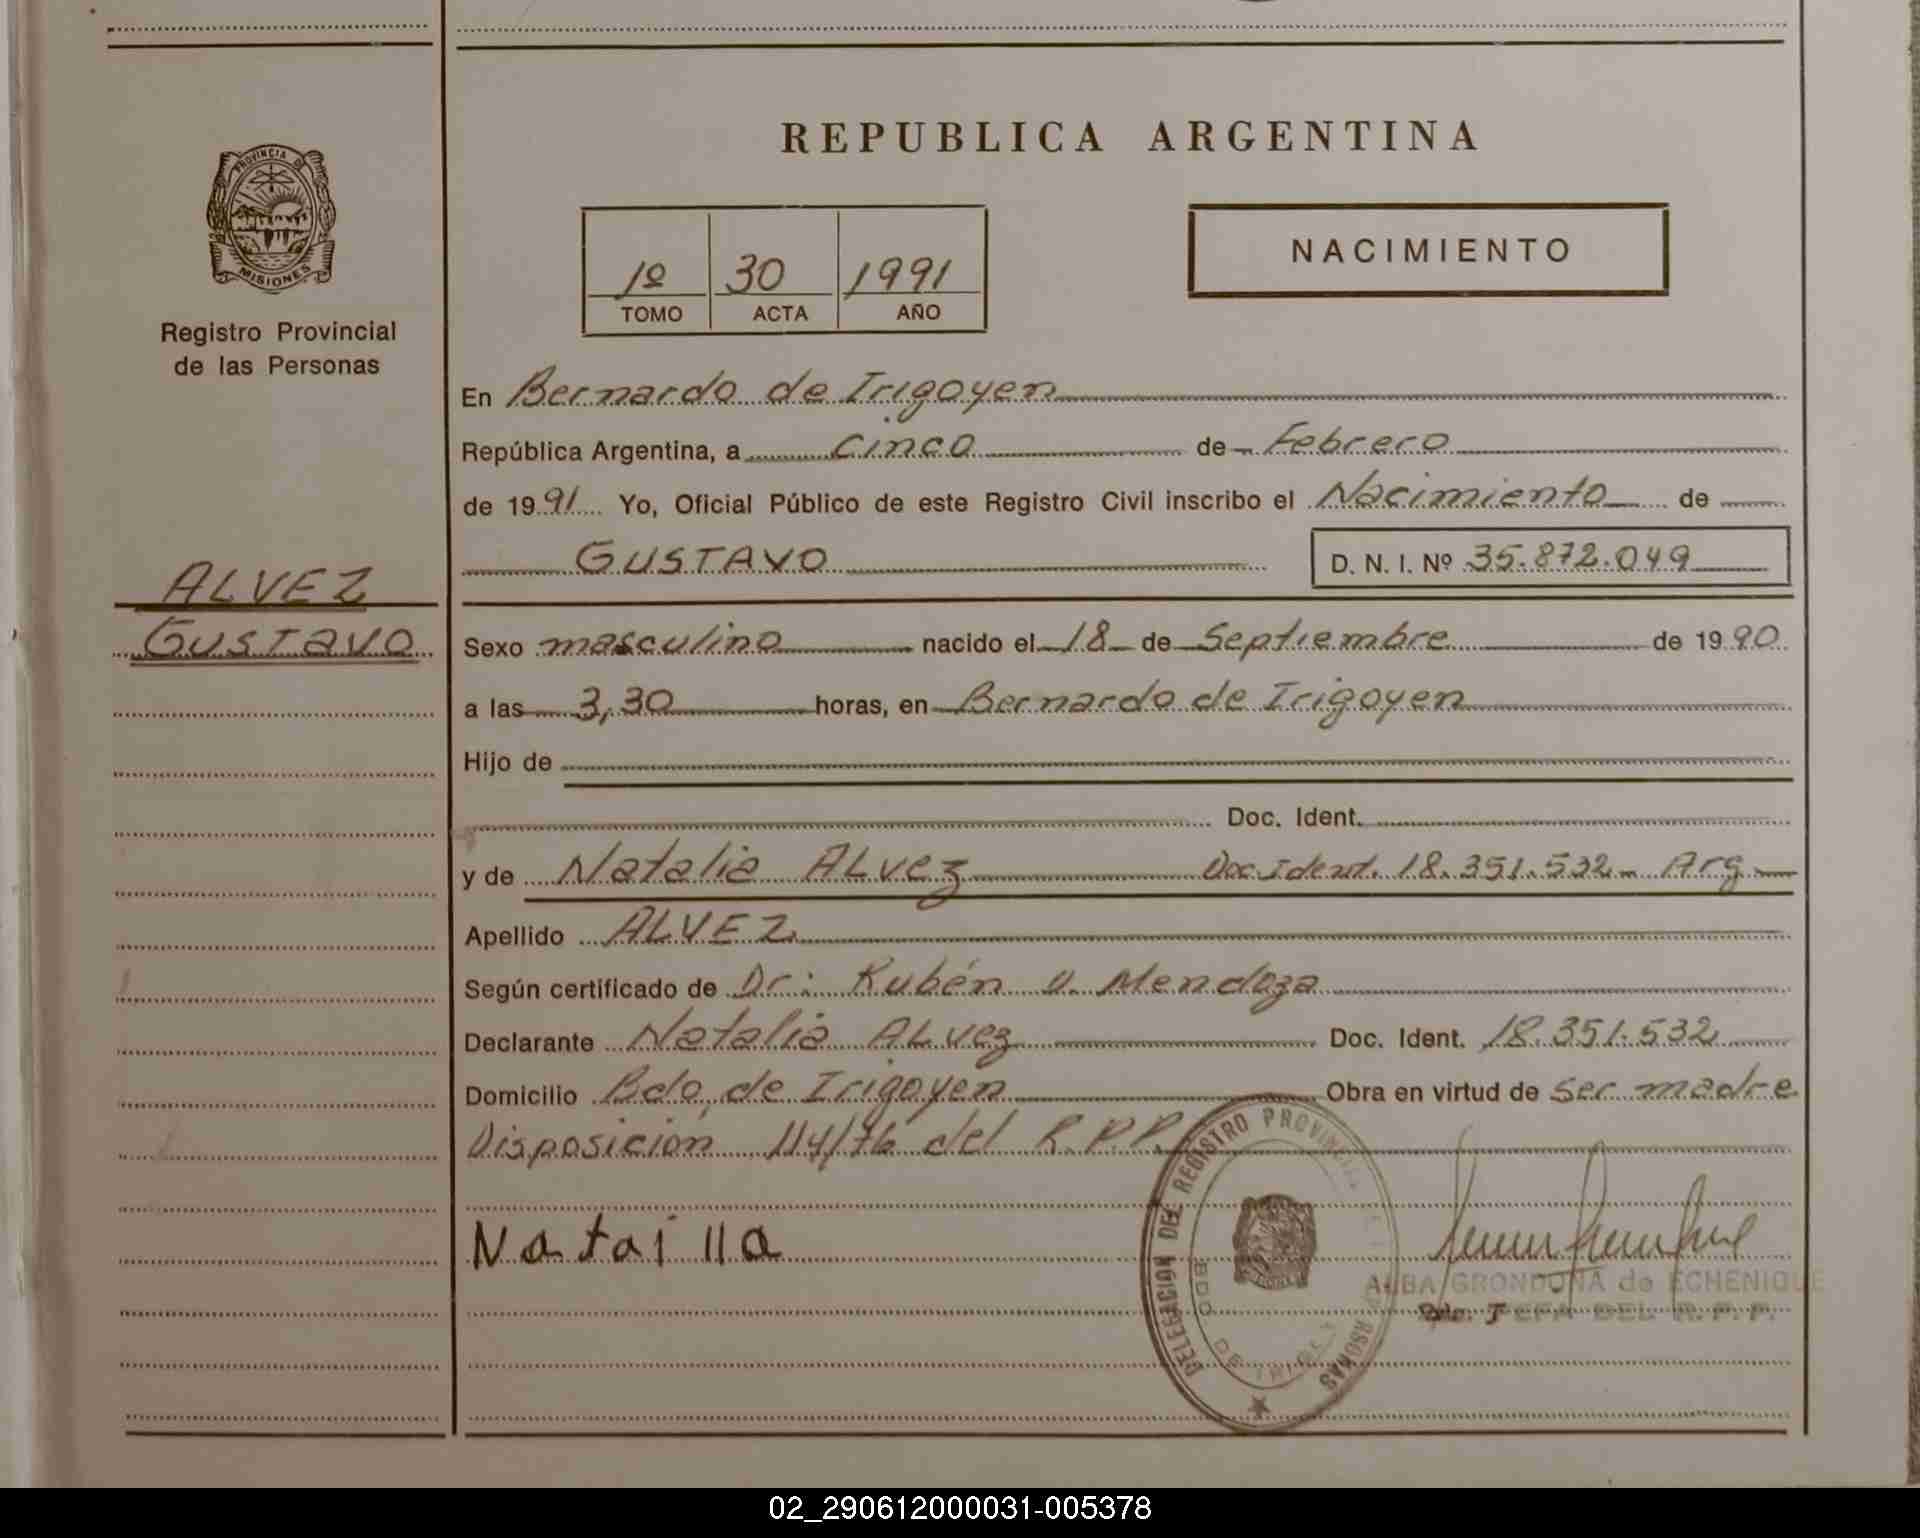 PROVINCIA DE
MISIONES
Registro Provincial
de las Personas
ALVEZ
GUSTAVO
REPUBLICA ARGENTINA
1º 30 1991
TOMO ACTA AÑO
NACIMIENTO
En Bernardo de Irigoyen
República Argentina, a cinco de Febrero
de 1991 Yo, Oficial Público de este Registro Civil inscribo el Nacimiento de
GUSTAVO D. N. I. Nº 35.872.049
Sexo masculino nacido el 18 de Septiembre de 1990
a las 3,30 horas, en Bernardo de Irigoyen
Hijo de
Doc. Ident.
y de Natalia ALVEZ Doc. Ident. 18.351.532 - Arg
Apellido ALVEZ
Según certificado de Dr: Rubén O. Mendoza
Declarante Natalia ALVEZ Doc. Ident. 18.351.532
Domicilio Bdo. de Irigoyen Obra en virtud de ser madre
Disposición 114/76 del R.P.P.
Natai lla
DELEGACION DEL REGISTRO PROVINCIAL DE
BDO DE
ALBA GRONDONA de ECHENIQUE
JEFA DEL R. P. P.
02_290612000031-005378